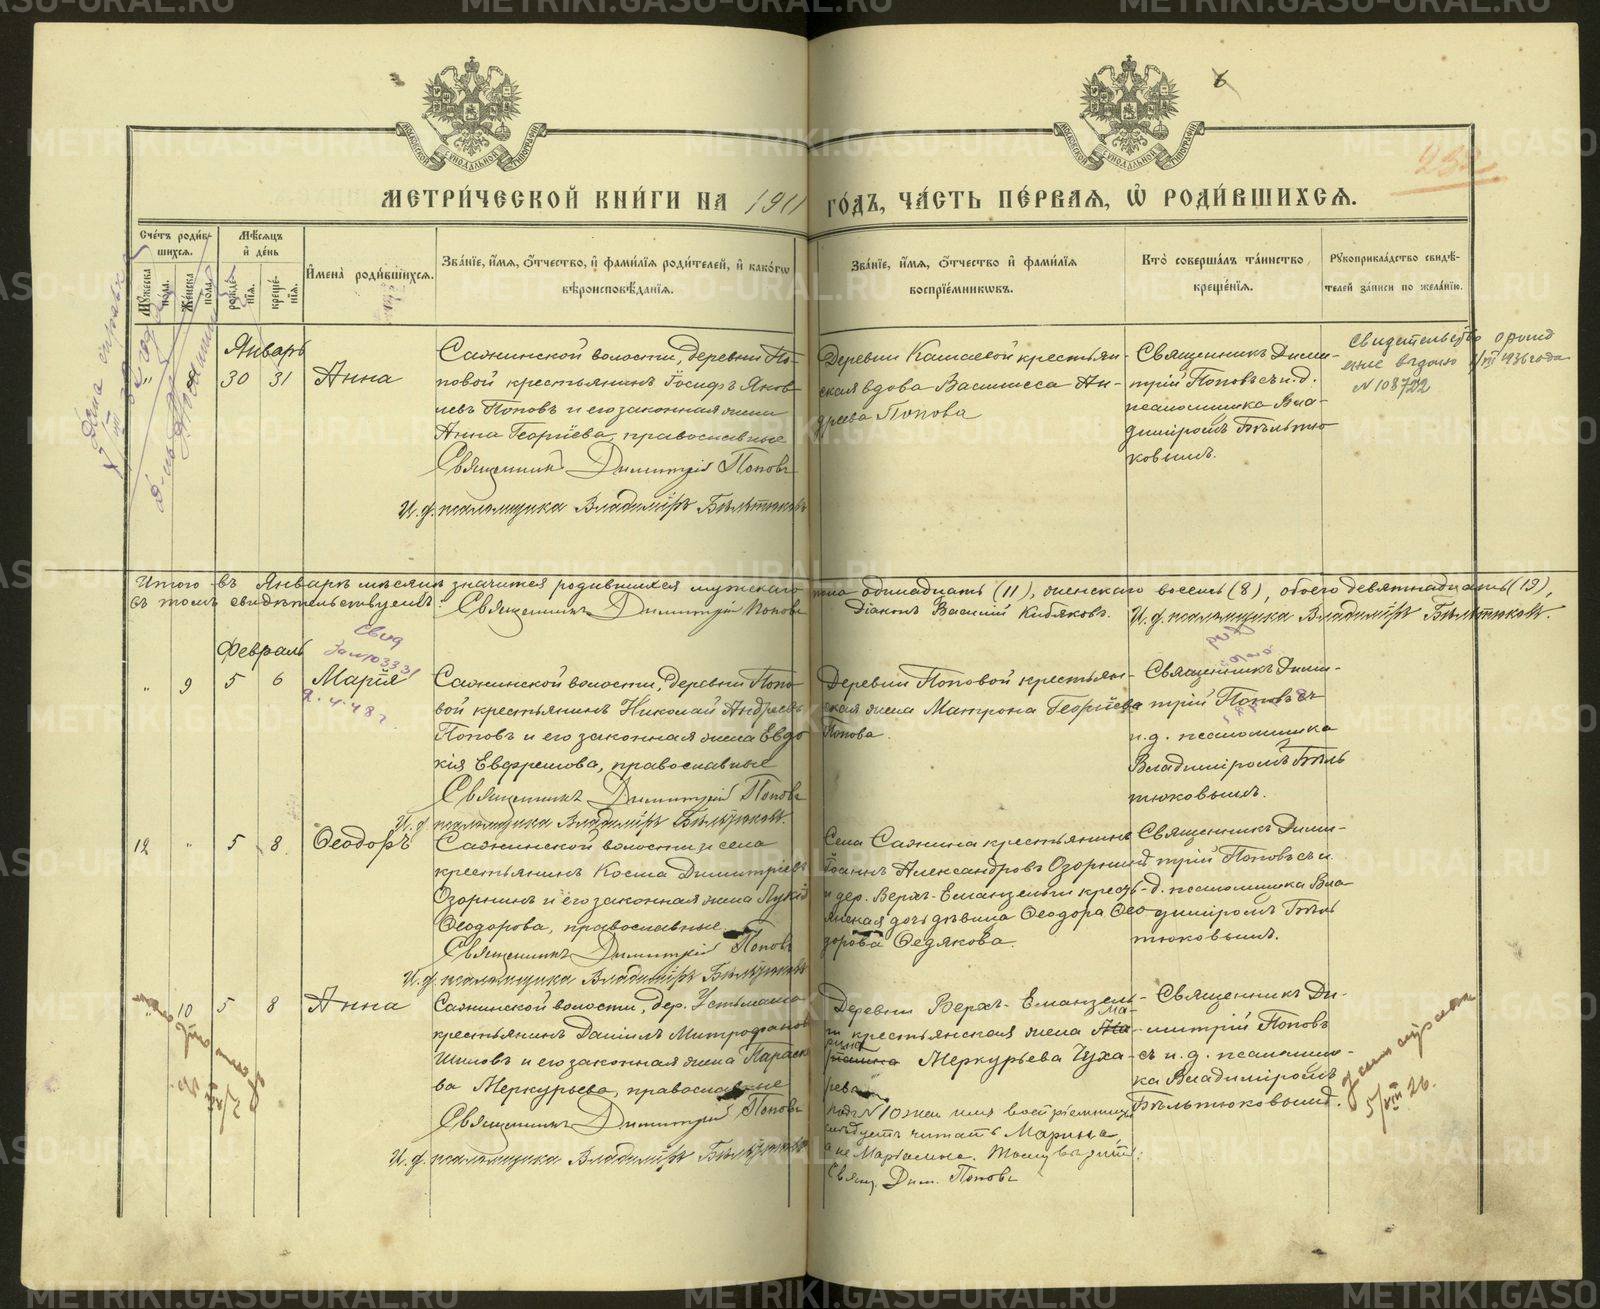 МЕТРИ́ЧЕСКОЙ КНИ́ГИ НА 1911 ГО́ДЪ, ЧА́СТЬ ПЕ́РВАѦ, Ѡ҆ РОДИ́ВШИХСѦ.
Сче́тъ роди́вшихсѧ.
Мꙋ́жеска по́ла.
Же́нска по́ла.
Мѣ́сѧцъ и҆ де́нь
рожде́нїѧ.
креще́нїѧ.
И҆мена̀ роди́вшихсѧ.
Зва́нїе, и҆́мѧ, ѻ҆́тчество, и҆ фами́лїѧ роди́телей, и҆ како́гѡ
вѣроисповѣ́данїѧ.
Зва́нїе, и҆́мѧ, ѻ҆́тчество и҆ фами́лїѧ
воспрїе́мникѡвъ.
Кто̀ соверша́лъ та́инство
креще́нїѧ.
Рꙋкоприкла́дство свидѣ́-
телей за́писи по жела́нїю.
Январь
30 31 Анна
Сажинской волости, деревни По-
повой крестьянинъ Іосифъ Яков-
левъ Поповъ и его законная жена
Анна Георгіева, православные
Священникъ Димитрій Поповъ
И. д. псаломщика Владиміръ Бѣлтюковъ
Деревни Кашаевой крестьян-
ская вдова Васшиса Ан-
дреева Попова
Священникъ Дими-
трій Поповъ съ и. д.
псаломщика Вла-
диміромъ Бѣльтю-
ковымъ.
Свидетельство о рожд
ение выдано 1936 года
№ 108722
Итого въ Январѣ мѣсяцѣ значится родившихся мужскаго пола одинадцать (11), женскаго восемь (8), обоего девятнадцать (19),
въ томъ свидѣтельствуемъ: Священникъ Димитрій Поповъ Діаконъ Василій Кибяковъ. И. д. псаломщика Владиміръ Бѣлтюковъ.
Февраль
" 9 5 6 Марія
Сажинской волости, деревни Попо-
вой крестьянинъ Николай Андреевъ
Поповъ и его законная жена Евдо-
кія Евфремова, православные
Священникъ Димитрій Поповъ
И. д. псаломщика Владиміръ Бѣлтюковъ.
Деревни Поповой крестьян-
ская жена Матрона Георгіева
Попова.
Священникъ Дими-
трій Поповъ съ
и. д. псаломщика
Владиміромъ Бѣль-
тюковымъ.
12 " 5 8 Ѳеодоръ
Сажинской волости и села
крестьянинъ Косма Димитріевъ
Озорнинъ и его законная жена Лукія
Ѳеодорова, православные.
Священникъ Димитрій Поповъ
И. д. псаломщика Владиміръ Бѣлтюковъ
Села Сажина крестьянинъ
Іоаннъ Александровъ Озорнинъ
и дер. Верхъ-Еманзельги кресть-
янская дочь дѣвица Ѳеодора Ѳео-
дорова Ѳедякова.
Священникъ Дими-
трій Поповъ съ и.
д. псаломщика Вла-
диміромъ Бѣль-
тюковымъ.
" 10 5 8 Анна
Сажинской волости, дер. Устьмаша
крестьянинъ Даніилъ Митрофановъ
Шиловъ и его законная жена Параске-
ва Меркурьева, православные
Священникъ Димитрій Поповъ
И. д. псаломщика Владиміръ Бѣлтюковъ
Деревни Верхъ-Еманзель-
ги крестьянская жена Ма-
рина Меркурьева Чуха-
рева
подъ № 10 жен. имя воспріемницы
слѣдуетъ читать Марина
а не
Свящ. Дим. Поповъ
Священникъ Ди-
митрій Поповъ
съ и. д. псаломщи-
ка Владиміромъ
Бѣльтюковымъ.